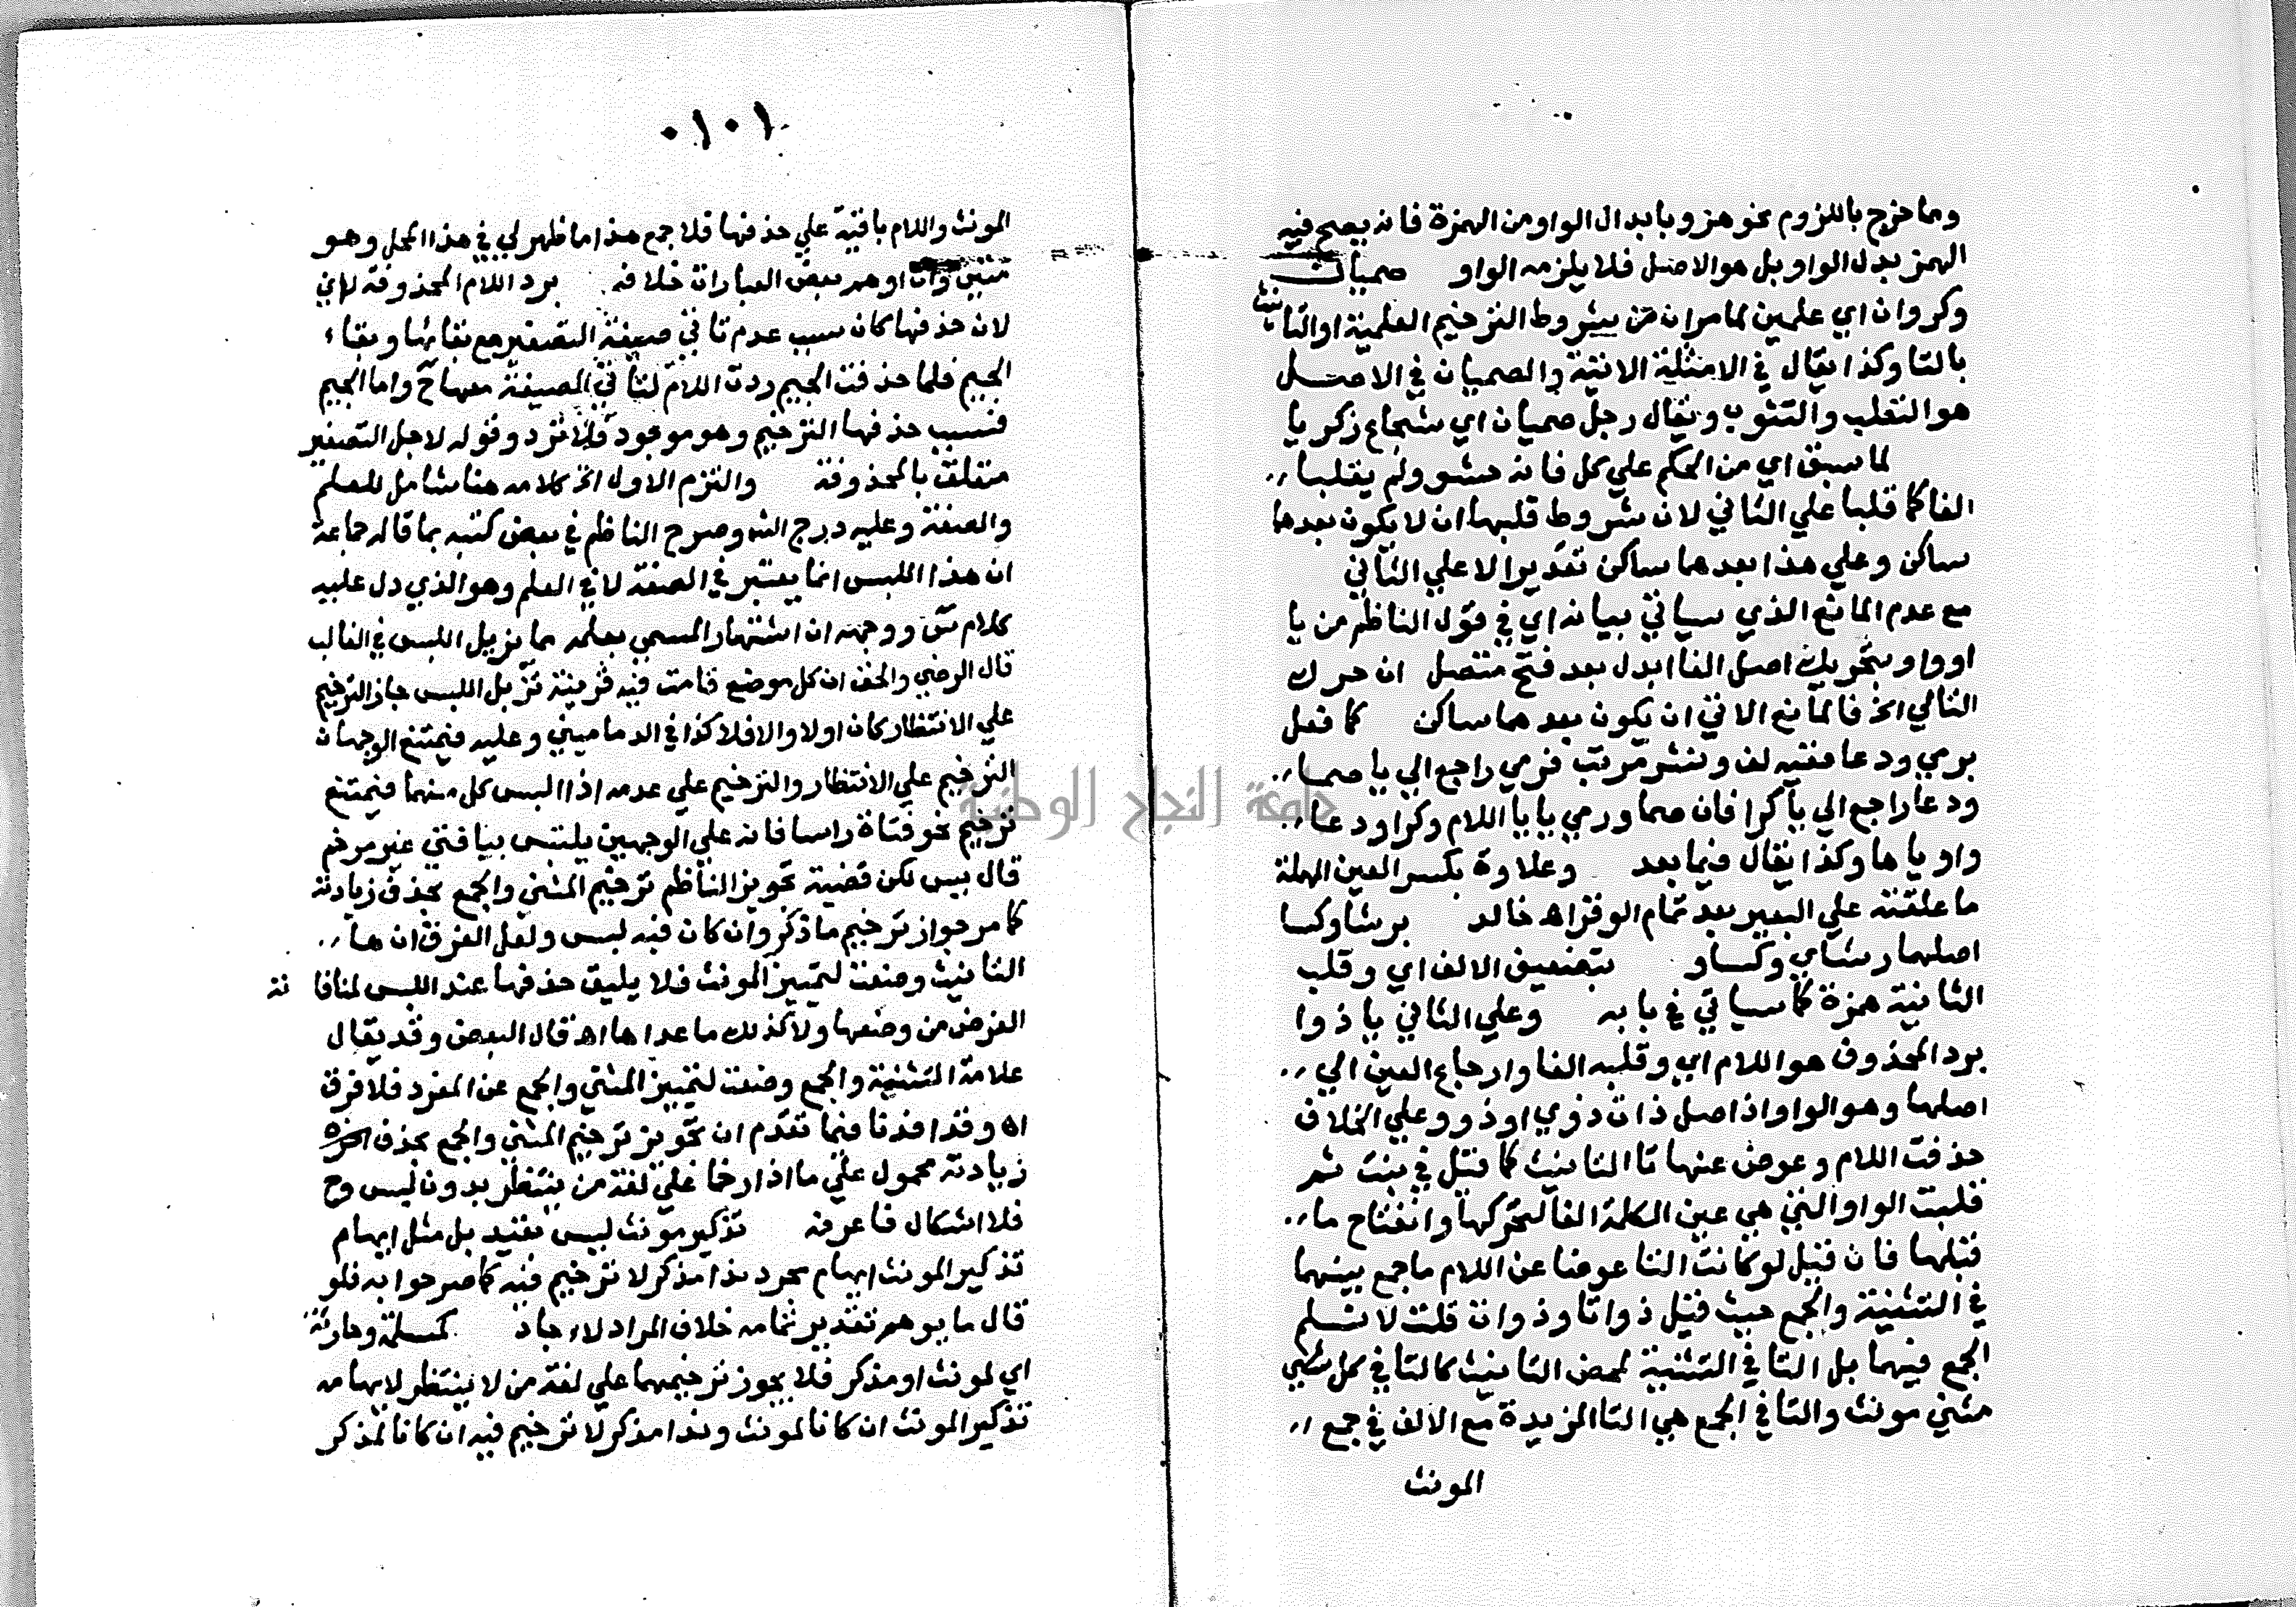 ومما خرج باللزوم نحو هزو بابدال الواو من الهمزة فانه يصح فيه
الهمز بدل الواو بل هو الاصل فلا يلزمه الواو صميان
وكروان اي علمين لما مر ان من شروط الترخيم العلمية او التانيث
بالتا وكذا يقال في الامثلة الاتية والصميان في الاصل
هو التقلب والتوثب ويقال رجل صميان اي شجاع زكريا
لما سبق اي من الحكم علي كل فانه حشو ولم يقلبا
الفا كما قلبا علي الثاني لان شروط قلبهما ان لا يكون بعدهما
ساكن وعلي هذا بعدهما ساكن تقديرا لا علي الثاني
مع عدم المانع الذي سياتي بيانه اي في قول الناظم من يا
او واو بتحريك اصل الفا ابدل بعد فتح متصل ان حرك
التالي الخ فالمانع الاتي ان يكون بعدهما ساكن كما فعل
برمي ودعا ففيه لف ونشر مرتب فرمي راجع الي يا صما
ودعا راجع الي يا كرا فان صما ورمي يا يا اللام وكرا ودعا
واوياها وكذا يقال فيما بعد وعلاوة بكسر العين المهملة
ما علقته علي البعير بعد تمام الوقر اه خالد برشا وكسا
اصلهما رشاي وكساو بتضعيف الالف اي وقلب
الثانية همزة كما سياتي في بابه وعلي الثاني يا ذوا
برد المحذوف هو اللام اي وقلبه الفا وارجاع العين الي
اصلها وهو الواو اذ اصل ذات ذوي او ذوو علي الخلاف
حذفت اللام وعوض عنها تا التانيث كما قيل في بنت ثم
قلبت الواو التي هي عين الكلمة الفا لتحركها وانفتاح ما
قبلها فان قيل لو كانت التا عوضا عن اللام ما جمع بينهما
في التثنية والجمع حيث قيل ذواتا وذوات قلت لا نسلم
الجمع فيهما بل التا في التثنية لمحض التانيث كالتا في كل شي
مثني مونث والتا في الجمع هي التا المزيدة مع الالف في جمع
المونث
١٠١
المونث واللام باقية علي حذفها فلا جمع هذا ما ظهر لي في هذا المحل وهو
متين وان اوهم بعض العبارات خلافه برد اللام المحذوفة
لان حذفها كان سبب عدم تاتي صيغة التصغير مع بقائها وبقاء
الجيم فلما حذفت الجيم ردت اللام لتاتي الصيغة معها ح واما الجيم
فسبب حذفها الترخيم وهو موجود فلا ترد وقوله لاجل التصغير
متعلق بالمحذوفة والتزم الاول الخ كلامه هنا شامل للعلم
والصفة وعليه درج الش وصرح الناظم في بعض كتبه بما قاله جماعة
ان هذا اللبس انما يعتبر في الصفة لا في العلم وهو الذي دل عليه
كلام س ووجهه ان اشتهار المسمي بعلمه مما يزيل اللبس في الغالب
قال الرضي والحق ان كل موضع قامت فيه قرينة تزيل اللبس جاز الترخيم
علي الانتظار كان اولا والا فلا كذا في الدماميني وعليه فيمتنع الوجهان
الترخيم علي الانتظار والترخيم علي عدمه اذا البس كل منهما فيمتنع
ترخيم نحو فتاة راسا فانه علي الوجهين يلتبس بيا فتي غير مرخم
قال يس لكن قضية تجويز الناظم ترخيم المثني والجمع بحذف زيادته
كما مر جواز ترخيم ما ذكر وان كان فيه لبس ولعل الفرق ان ها
التانيث وضعت لتمييز المونث فلا يليق حذفها عند اللبس لمنافاته
الغرض من وضعها ولا كذلك ما عداها اه قال البعض وقد يقال
علامة التثنية والجمع وضعت لتمييز المثني والجمع عن المفرد فلا فرق
اه وقد افدنا فيما تقدم ان تجويز ترخيم المثني والجمع بحذف
زيادته محمول علي ما اذا رخما علي لغة من ينتظر بدون لبس وح
فلا اشكال فاعرفه تذكير مونث ليس بقيد بل مثل ايهام
تذكير المونث ايهام مجرد ندا مذكر لا ترخيم فيه كما صرحوا به فلو
قال ما يوهم تقدير تمامه خلاف المراد لاجاد كمسلمة وحارثة
اي لمونث او مذكر فلا يجوز ترخيمهما علي لغة من لا ينتظر لايهامه
تذكير المونث ان كانا لمونث وندا مذكر لا ترخيم فيه ان كانا لمذكر
جامعة النجاح الوطنية